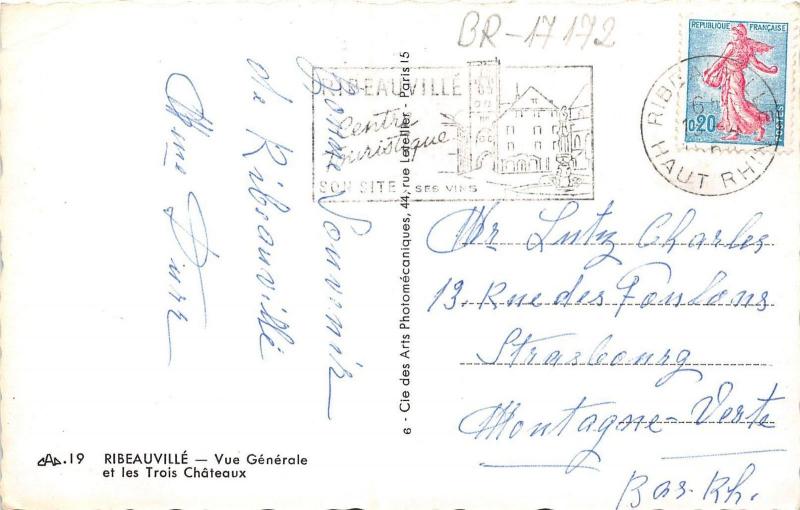 BR-17172
RIBEAUVILLÉ
Centre
Touristique
SON SITE SES VINS
REPUBLIQUE FRANÇAISE
0.20
POSTES
HAUT RHIN
Bonne Souvenir
de Ribeauvillé
Mme
6 - Cie des Arts Photomécaniques, 44, rue Letellier - Paris 15
Mr Lutz Charles
13. Rue des Foulons
Strasbourg
Montagne-Verte
Bas. Rh.
19 RIBEAUVILLÉ — Vue Générale
et les Trois Châteaux